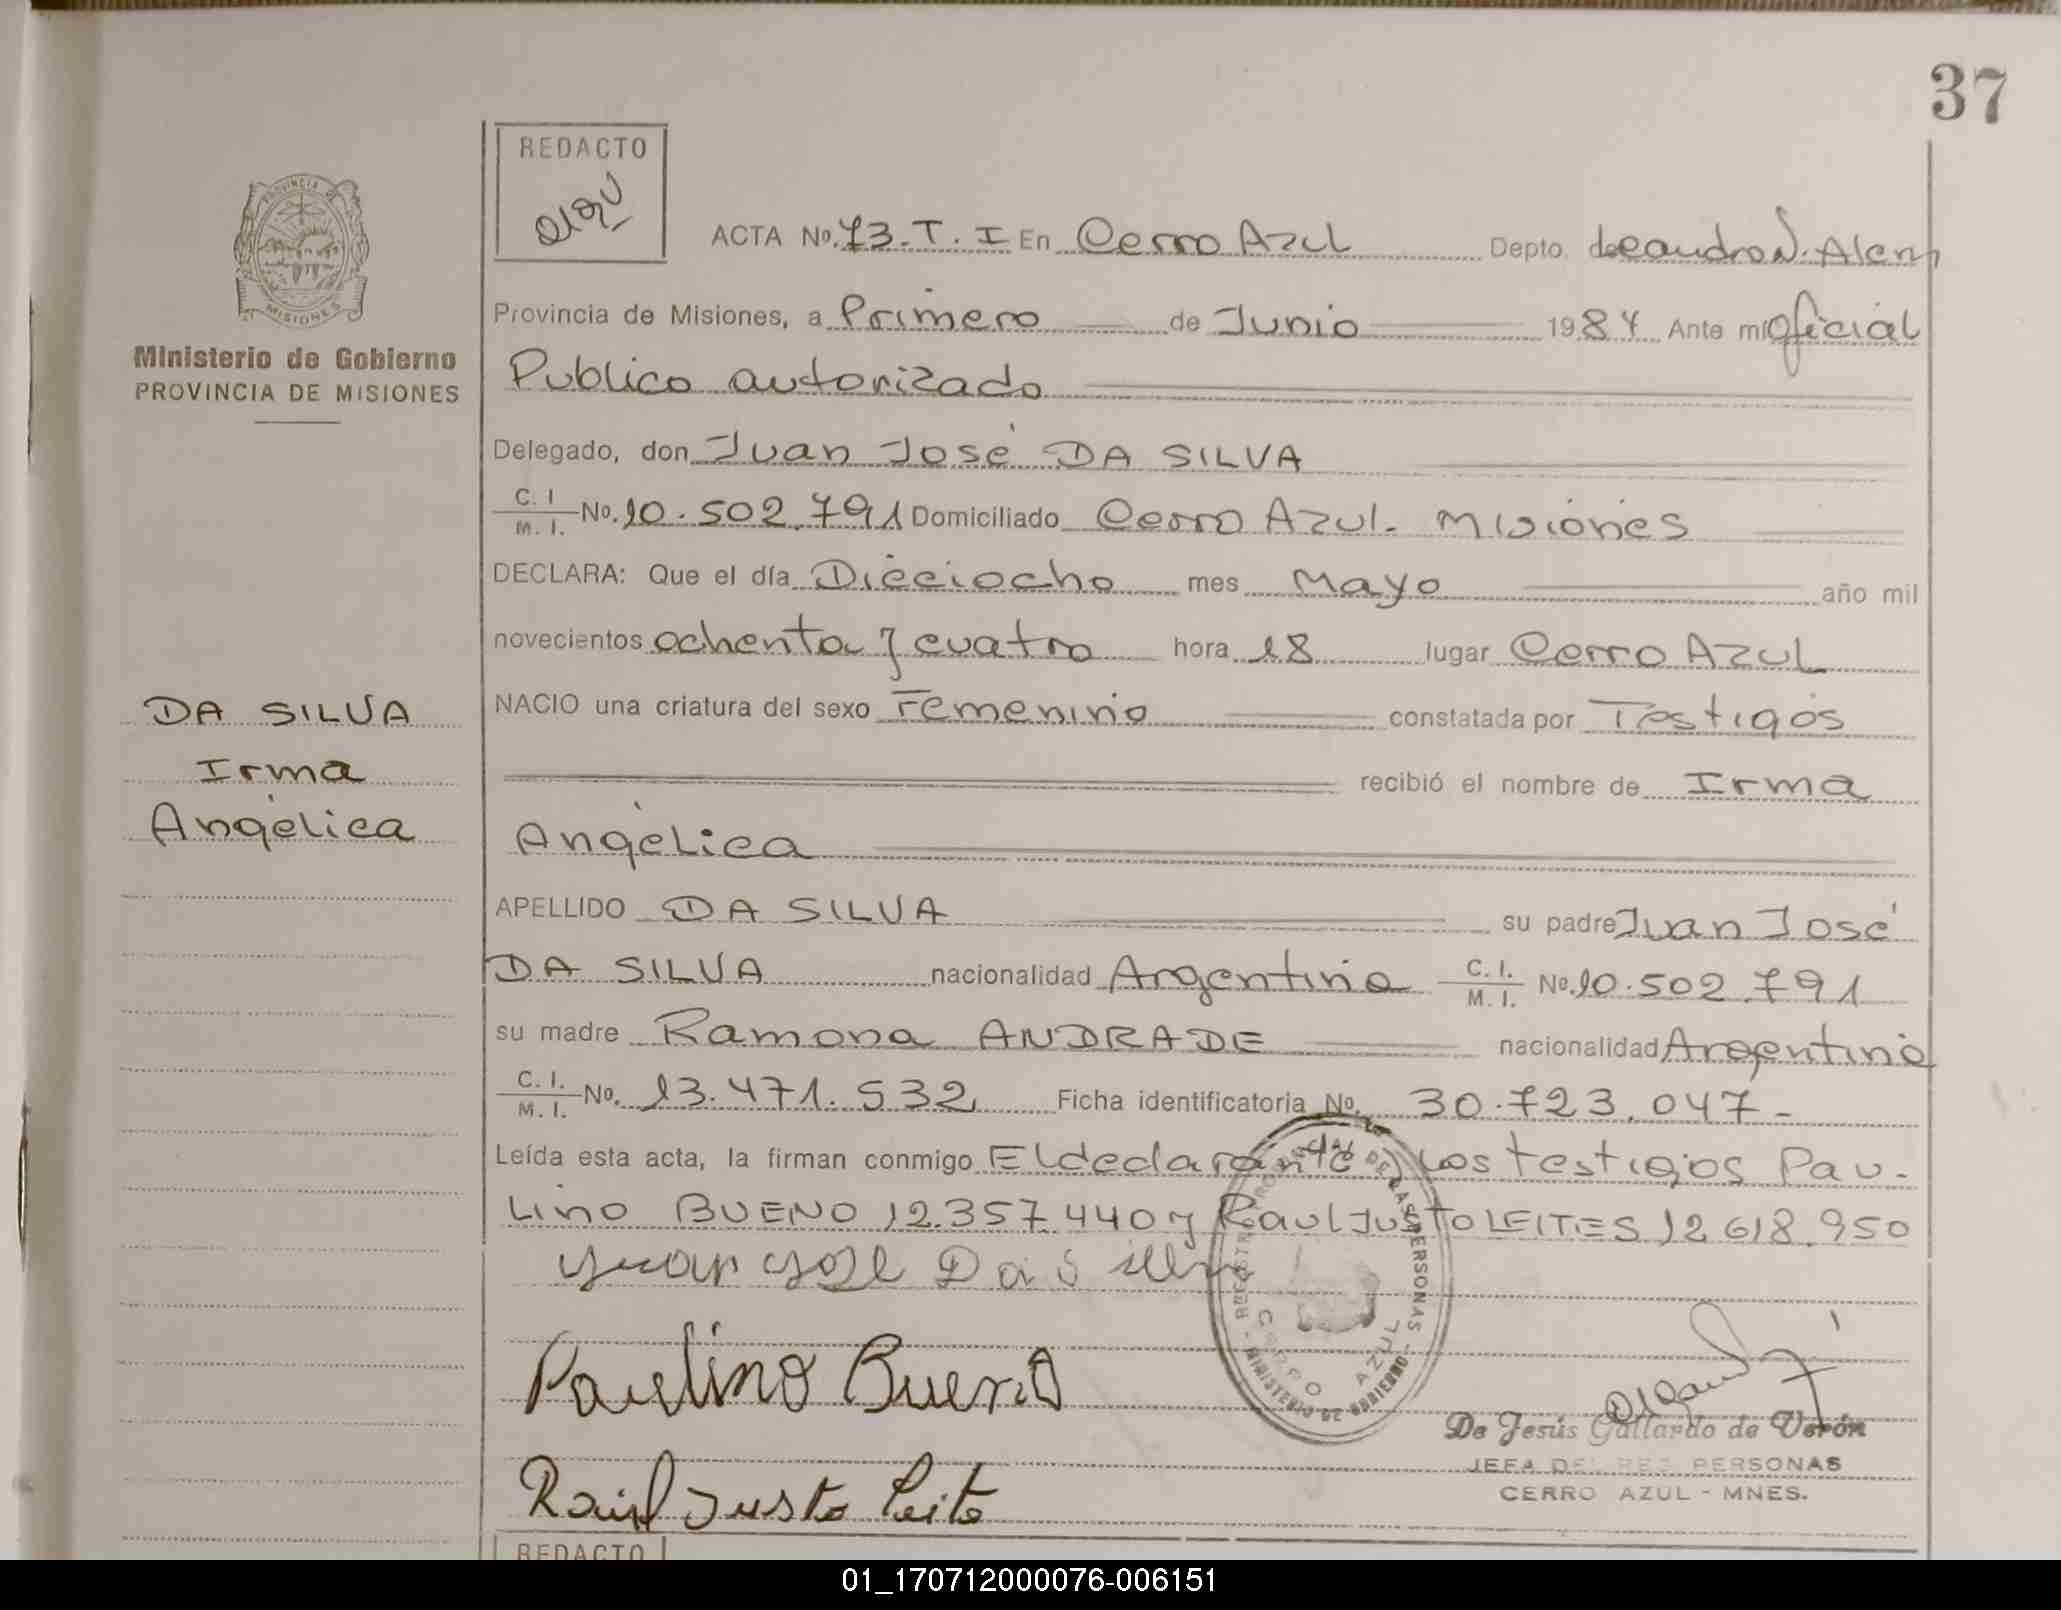 37
REDACTO
ACTA No. 73. T. I En Cerro Azul Depto. Leandro N. Alem
Provincia de Misiones, a Primero de Junio 1984 Ante mi Oficial
Publico autorizado
PROVINCIA
MISIONES
Ministerio de Gobierno
PROVINCIA DE MISIONES
Delegado, don Juan José DA SILVA
C. I. M. I. No. 10.502.791 Domiciliado Cerro Azul. Misiones
DECLARA: Que el día Dieciocho mes Mayo año mil
novecientos ochenta y cuatro hora 18 lugar Cerro Azul
NACIO una criatura del sexo Femenino constatada por Testigos
recibió el nombre de Irma
Angélica
DA SILVA
Irma
Angélica
APELLIDO DA SILVA su padre Juan José
DA SILVA nacionalidad Argentina C. I. M. I. No. 10.502.791
su madre Ramona ANDRADE nacionalidad Argentina
C. I. M. I. No. 13.471.532 Ficha identificatoria No. 30.723.047-
Leída esta acta, la firman conmigo El declarante y Los testigos Pau-
Lino BUENO 12.357.440 y Raul Justo LEITES 12.618.950
Juan Jose Da Silva
Paulino Bueno
Raul Justo Leite
CERRO AZUL
MINISTERIO DE GOBIERNO
De Jesús Gallardo de Verón
JEFA DEL REG. PERSONAS
CERRO AZUL - MNES.
REDACTO
01_170712000076-006151